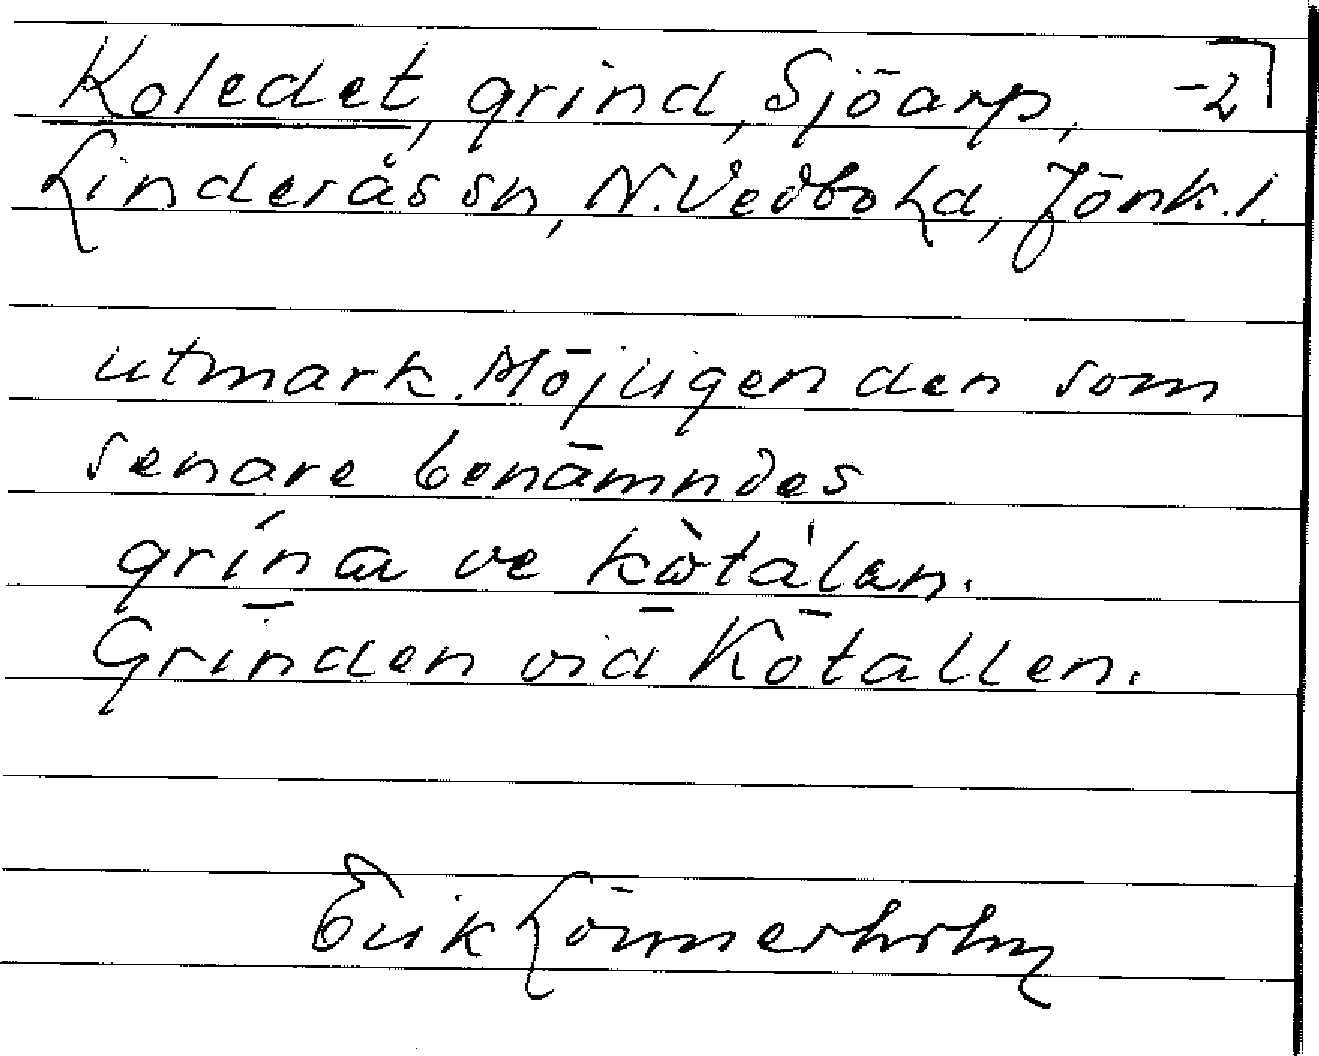 Koledet, grind, Sjöarp, -2
Linderås sn, N. Vedbo hd, Jönk. l.
utmark. Möjligen den som
senare benämndes
grína ve kòtálan.
Grinden vid Kötallen.
Erik Lönnerholm